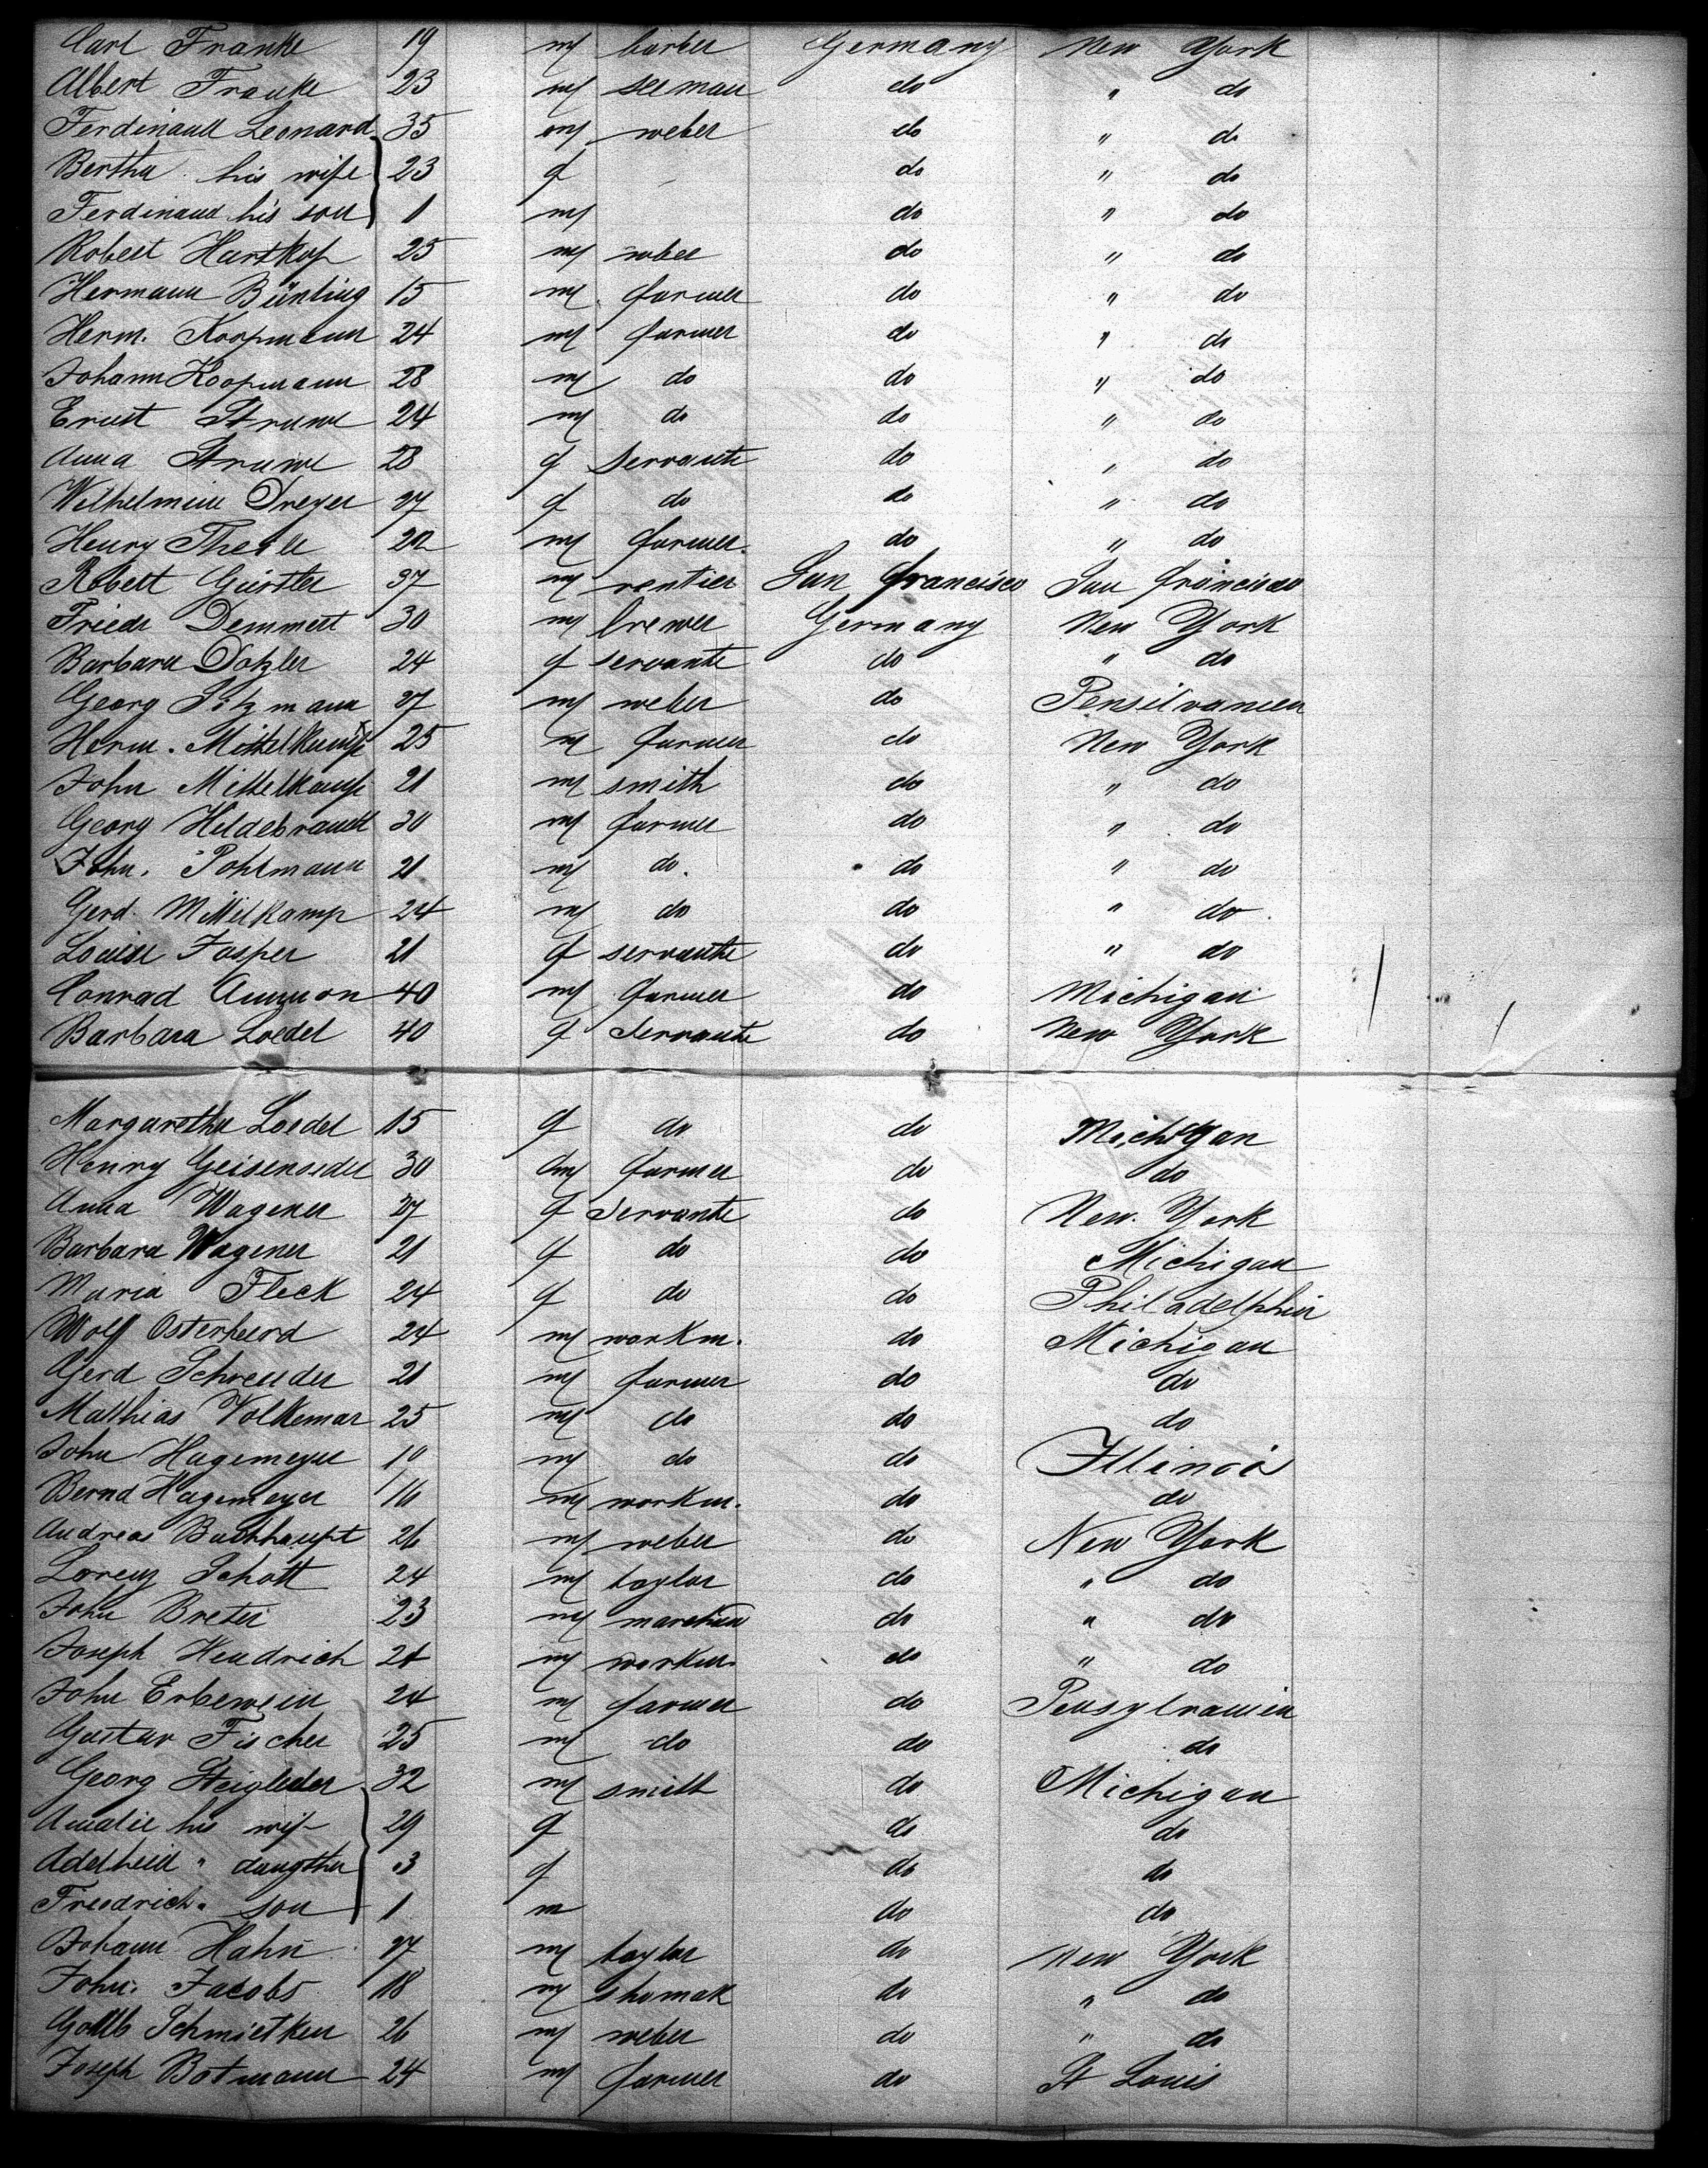 Carl Franke 19 m barber Germany New York
Albert Franke 23 m seeman do " do
Ferdinand Leonard 35 m weber do " do
Bertha his wife 23 f do " do
Ferdinand his son 1 m do " do
Robert Hartkop 25 m weber do " do
Hermann Bünting 15 m farmer do " do
Herm. Koopmann 24 m farmer do " do
Johann Koopmann 28 m do do " do
Ernst Struwe 24 m do do " do
Anna Struwe 28 f servante do " do
Wilhelmine Dreyer 27 f do do " do
Henry Theile 20 m farmer do " do
Robert Gürtler 37 m rentier San francisco San francisco
Friedr Demmert 30 m brewer Germany New York
Barbara Dotzler 24 f servante do " do
Georg Sitzmann 27 m weber do Pensilvanien
Herm. Mittelkamp 25 m farmer do New York
John Mittelkamp 21 m smith do " do
Georg Hildebrandt 30 m farmer do " do
John. Pohlmann 21 m do. do " do
Gerd. Mittelkamp 24 m do do " do
Louise Jasper 21 f servante do " do
Conrad Ammon 40 m farmer do Michigan
Barbara Loedel 40 f Servante do New York
Margaretha Loedel 15 f do do Michigan
Henry 30 m farmer do do
Anna Wagener 27 f Servante do New York
Barbara Wagener 21 f do do Michigan
Maria Fleck 24 f do do Philadelphia
Wolf 24 m workm. do Michigan
Gerd Schreuder 21 m farmer do do
Matthias Volkemar 25 m do do do
John Hagemeyer m do do Illinois
Bernd Hagemeyer 16 m workm. do do
Andreas Buchhaupt 26 m weber do New York
Lorenz Schott 24 m taylor do " do
John Breter 23 m do " do
Joseph Hendrich m workm. do " do
John Erbewein 24 m farmer do Pensylvanien
Gustav Fischer 25 m do do do
Georg Steigleder 32 m smith do Michigan
Amalie his wife 29 f do do
Adelheid " daugther 3 f do do
Friedrich " son 1 m do do
Johann Hahn 27 m taylor do New York
John. Jacobs 18 m shomak do " do
Gottlb Schmietken 26 m weber do " do
Joseph Botmann 24 m farmer do St Louis